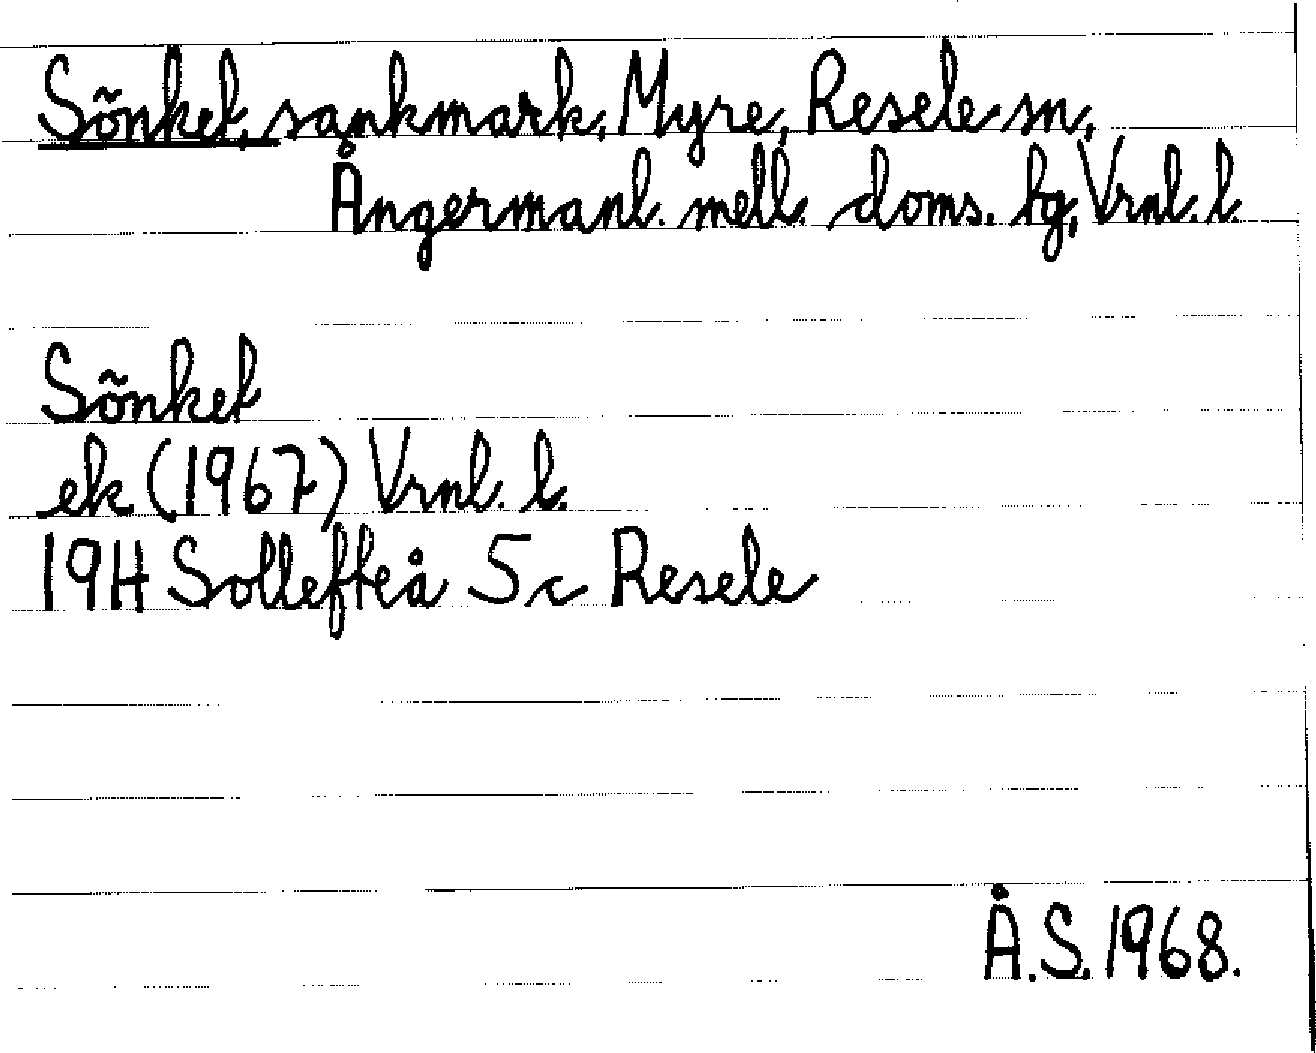 Sõnket, sankmark, Myre, Resele sn,
Ångermanl. mell. doms. hg, Vrnl. l.
Sõnket
ek (1967) Vrnl. l.
19H Sollefteå 5c Resele
Å.S. 1968.